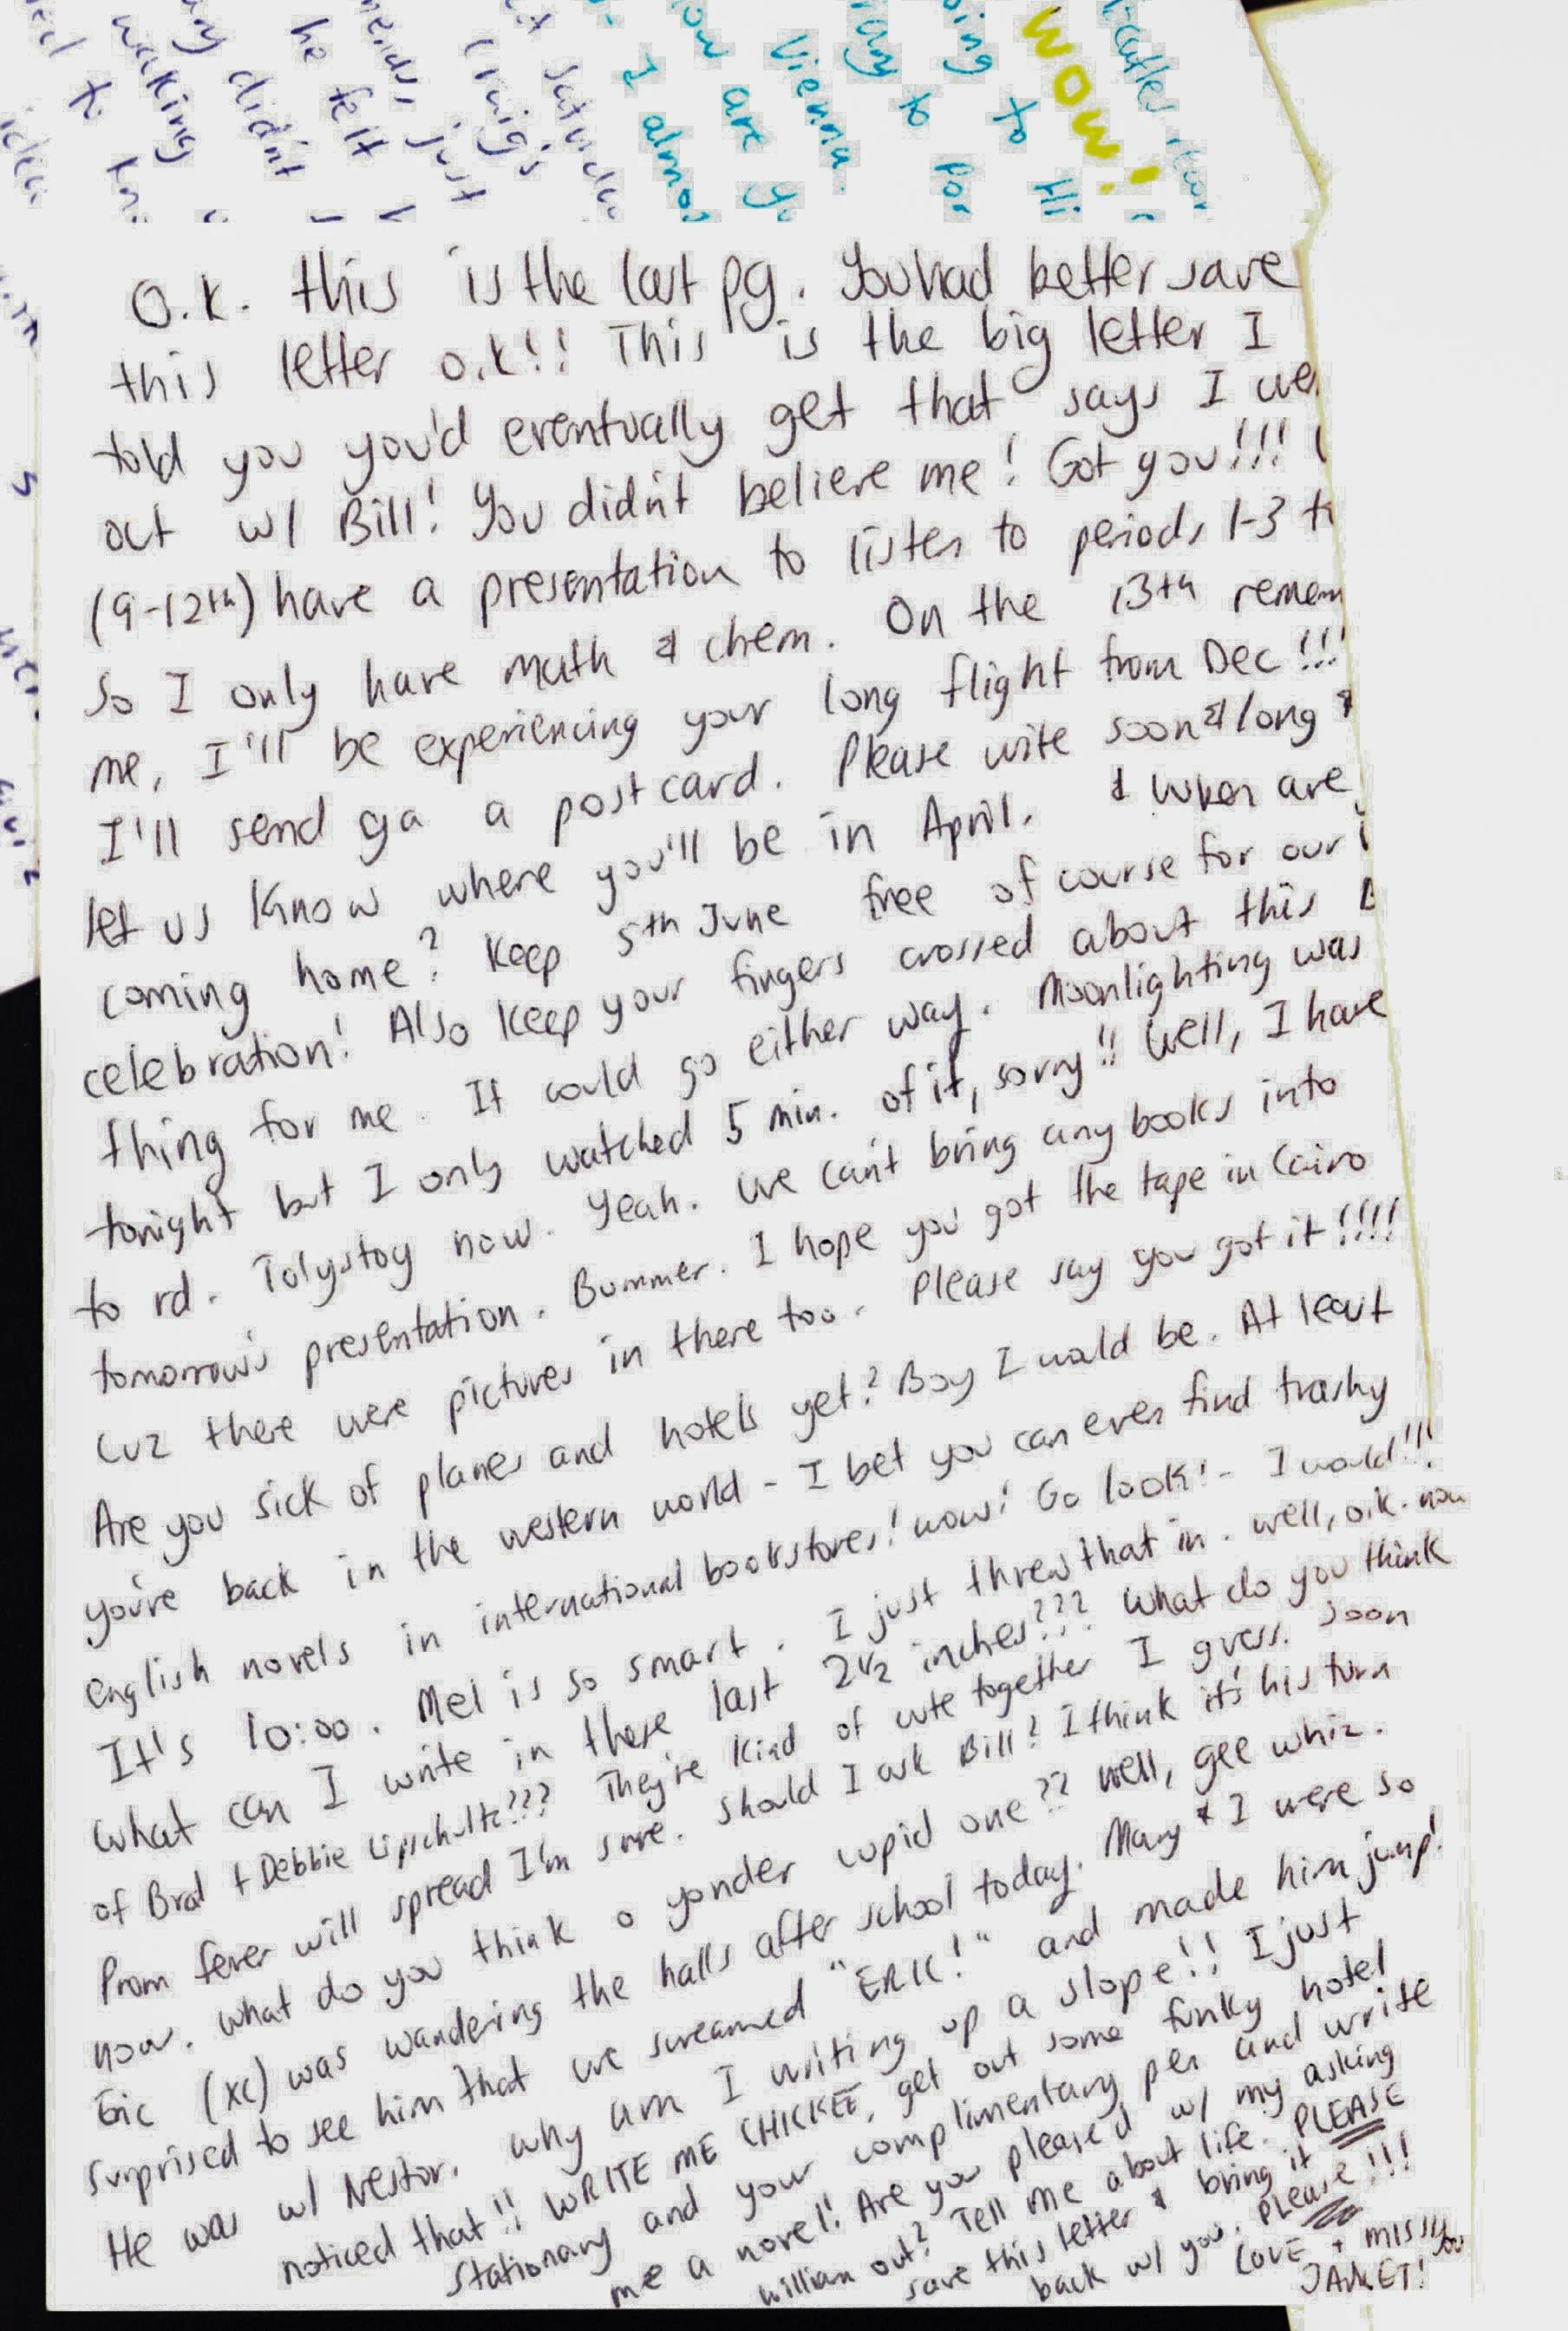 WOW!
Vienna.
I almos
How are yo
to
didn't
he felt
just
walking
O.K. this is the last pg. You had better save
this letter o.k!! This is the big letter I
told you you'd eventually get that says I we
out w/ Bill! You didn't believe me! Got you!!!
(9-12th) have a presentation to listen to periods 1-3
so I only have math & chem. On the 13th remem
me, I'll be experiencing your long flight from Dec!!!
I'll send ya a postcard. Please write soon & long &
let us know where you'll be in April. & when are
coming home? Keep 5th June free of course for our
celebration! Also keep your fingers crossed about this
thing for me. It could go either way. Moonlighting was
tonight but I only watched 5 min. of it, sorry!! Well, I have
to rd. Tolystoy now. Yeah. We can't bring any books into
tomorrow's presentation. Bummer. I hope you got the tape in Cairo
cuz there were pictures in there too. Please say you got it!!!!
Are you sick of planes and hotels yet? Boy I would be. At least
you're back in the western world - I bet you can even find trashy
english novels in international bookstores! wow! Go look! - I would!!!
It's 10:00. Mel is so smart. I just threw that in. Well, o.k. now
what can I write in these last 2 1/2 inches??? What do you think
of Brad + Debbie Lipschultz??? They're kind of cute together I guess. Soon
Prom fever will spread I'm sure. Should I ask Bill? I think it's his turn
now. What do you think o yonder cupid one?? Well, gee whiz.
Eric (xc) was wandering the halls after school today. Mary & I were so
surprised to see him that we screamed "ERIC!" and made him jump!
He was w/ Nestor. Why am I writing up a slope!! I just
noticed that!! WRITE ME CHICKEE, get out some funky hotel
stationary and your complimentary pen and write
me a novel! Are you pleased w/ my asking
william out? Tell me about life. PLEASE
save this letter & bring it
back w/ you. PLEASE!!!
LOVE + MISS YOU
JANET!